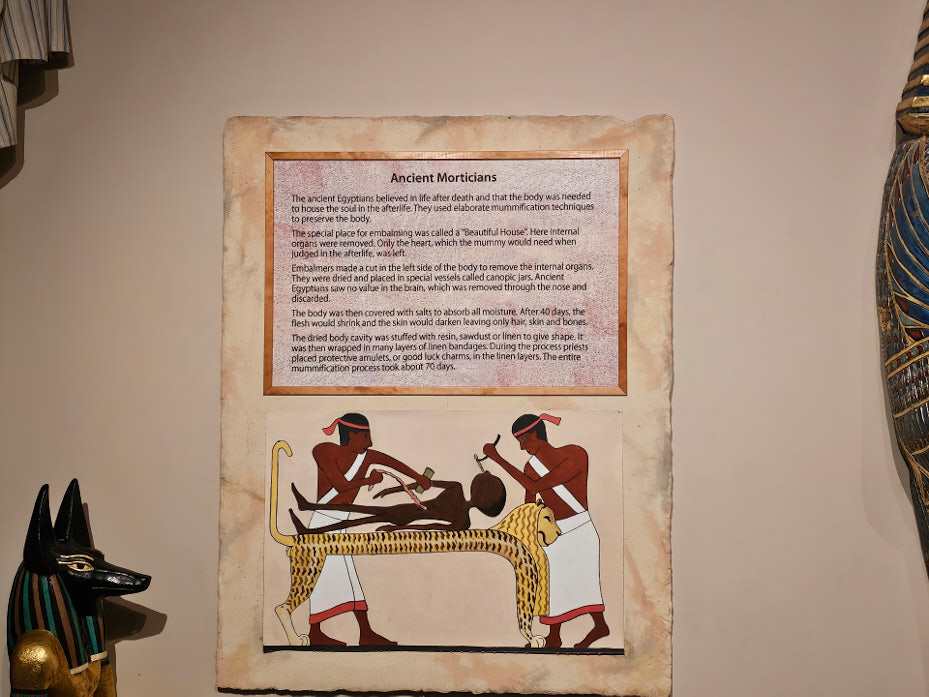 Ancient Morticians
The ancient Egyptians believed in life after death and that the body was needed
to house the soul in the afterlife. They used elaborate mummification techniques
to preserve the body.
The special place for embalming was called a "Beautiful House". Here internal
organs were removed. Only the heart, which the mummy would need when
judged in the afterlife, was left.
Embalmers made a cut in the left side of the body to remove the internal organs.
They were dried and placed in special vessels called canopic jars. Ancient
Egyptians saw no value in the brain, which was removed through the nose and
discarded.
The body was then covered with salts to absorb all moisture. After 40 days, the
flesh would shrink and the skin would darken leaving only hair, skin and bones.
The dried body cavity was stuffed with resin, sawdust or linen to give shape. It
was then wrapped in many layers of linen bandages. During the process priests
placed protective amulets, or good luck charms, in the linen layers. The entire
mummification process took about 70 days.